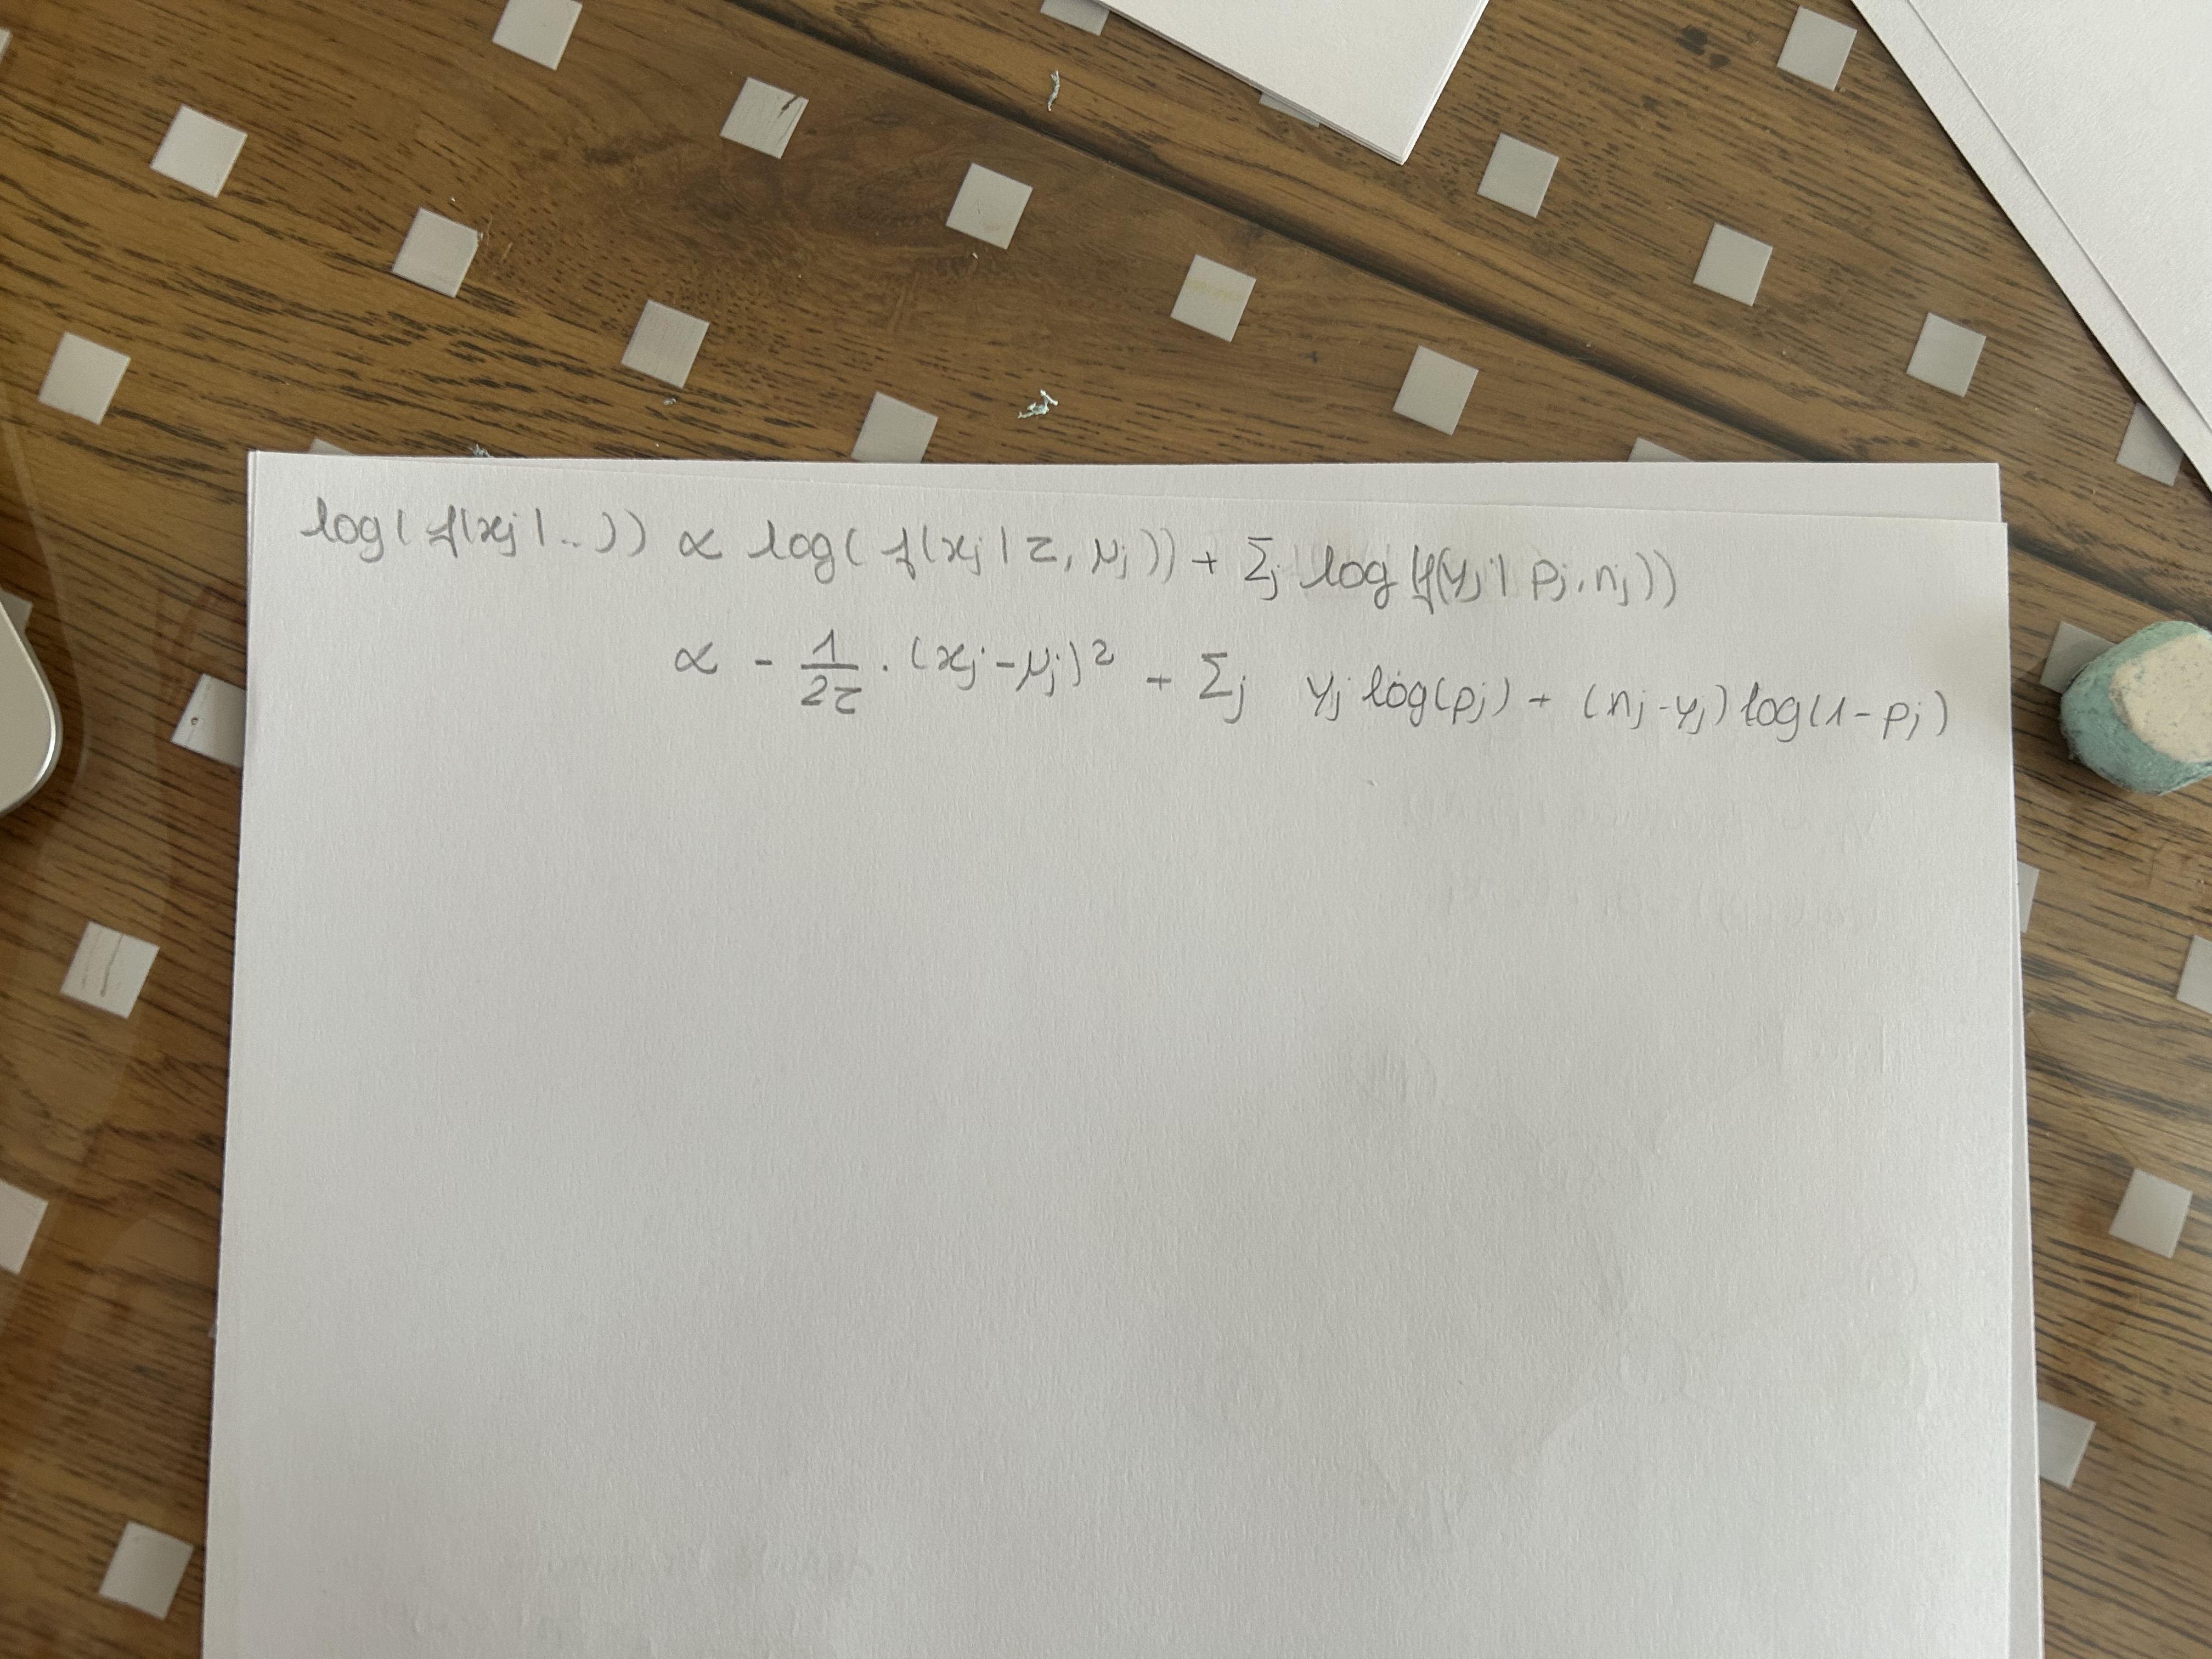 log(f(xj|..)) ∝ log(f(xj|z,μj)) + Σj log(f(yj|pj,nj))
∝ - 1/2z · (xj-μj)² + Σj yj log(pj) + (nj-yj) log(1-pj)